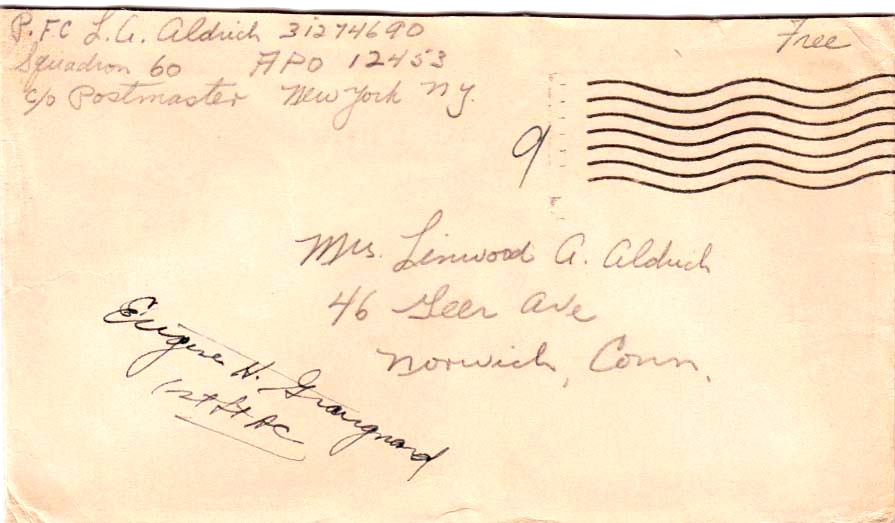 P.FC L.A. Aldrich 31274690
Free
Squadron 60 APO 12453
c/o Postmaster New York N.Y.
9
Mrs. Linwood A. Aldrich
46 Geer Ave
Norwich, Conn.
Eugene H.
1st Lt AC